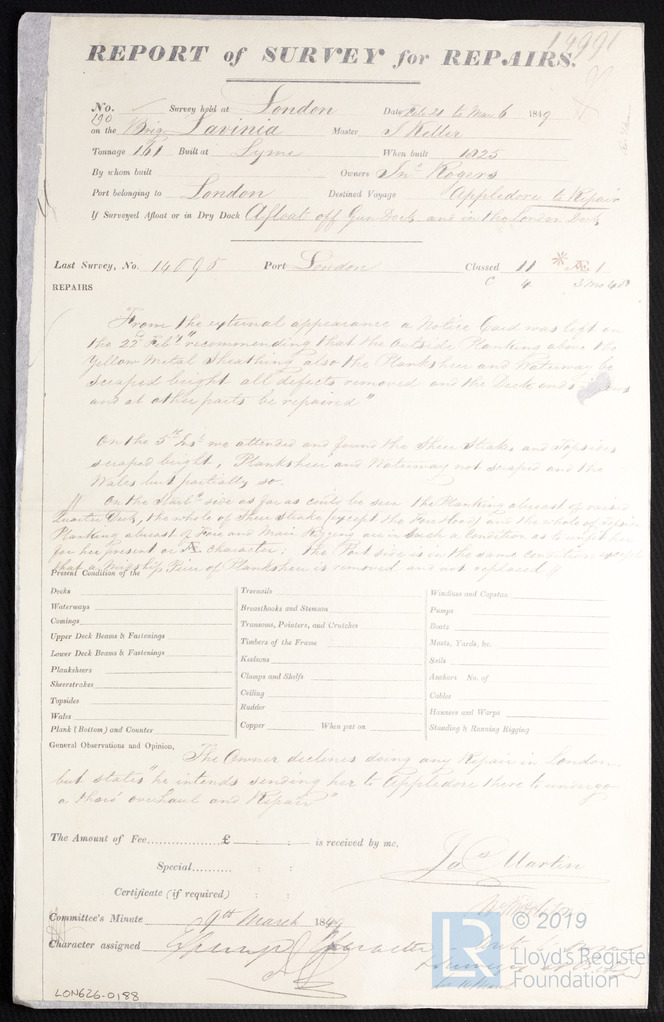 14991
REPORT of SURVEY for REPAIRS.
No. 190 Survey held at London Date Feb 21 to Mar 6 1849
on the Brig Lavinia Master S Keller
Tonnage 161 Built at Lyme When built 1825
By whom built Owners Jno Rogers
Port belonging to London Destined Voyage Appledore to Repair
If Surveyed Afloat or in Dry Dock Afloat off Gun Dock and in the London Dock
Last Survey, No. Port London Classed 11 * Æ 1
C 4
REPAIRS
From the external appearance a Notice Card was left on
the 22nd Feby "recommending that the Outside Planking above the
Yellow Metal Sheathing also the Planksheer and Waterway be
scraped bright all defects removed and the Deck ends
and at other parts be repaired"
On the 5th Inst we attended and found the Sheer Strakes and Topsides
scraped bright, Planksheer and Waterway not scraped and the
Wales but partially so.
On the Starbd side as far as could be seen the Planking abreast of raised
Quarter Deck, the whole of Sheer Strake (except the Fore Hood) and the whole of topside
Planking abreast of Fore and Main Rigging are in such a condition as to unfit her
for her present or Æ character: the Port side is in the same condition except
that a Midship Piece of Planksheer is removed and not replaced
Present Condition of the
Decks
Waterways
Comings
Upper Deck Beams & Fastenings
Lower Deck Beams & Fastenings
Planksheers
Sheerstrakes
Topsides
Wales
Plank (Bottom) and Counter
Treenails
Breasthooks and Stemson
Transoms, Pointers, and Crutches
Timbers of the Frame
Keelsons
Clamps and Shelfs
Ceiling
Rudder
Copper When put on
Windlass and Capstan
Pumps
Boats
Masts, Yards, &c.
Sails
Anchors No. of
Cables
Hawsers and Warps
Standing & Running Rigging
General Observations and Opinion, The Owner declines doing any Repair in London
but states "he intends sending her to Appledore there to undergo
a thoro' overhaul and Repair"
The Amount of Fee £ : : is received by me,
Special : :
Jas Martin
Certificate (if required) : :
Committee's Minute 9th March 1849
Character assigned
LON626-0188
LR
© 2019
Lloyd's Register
Foundation